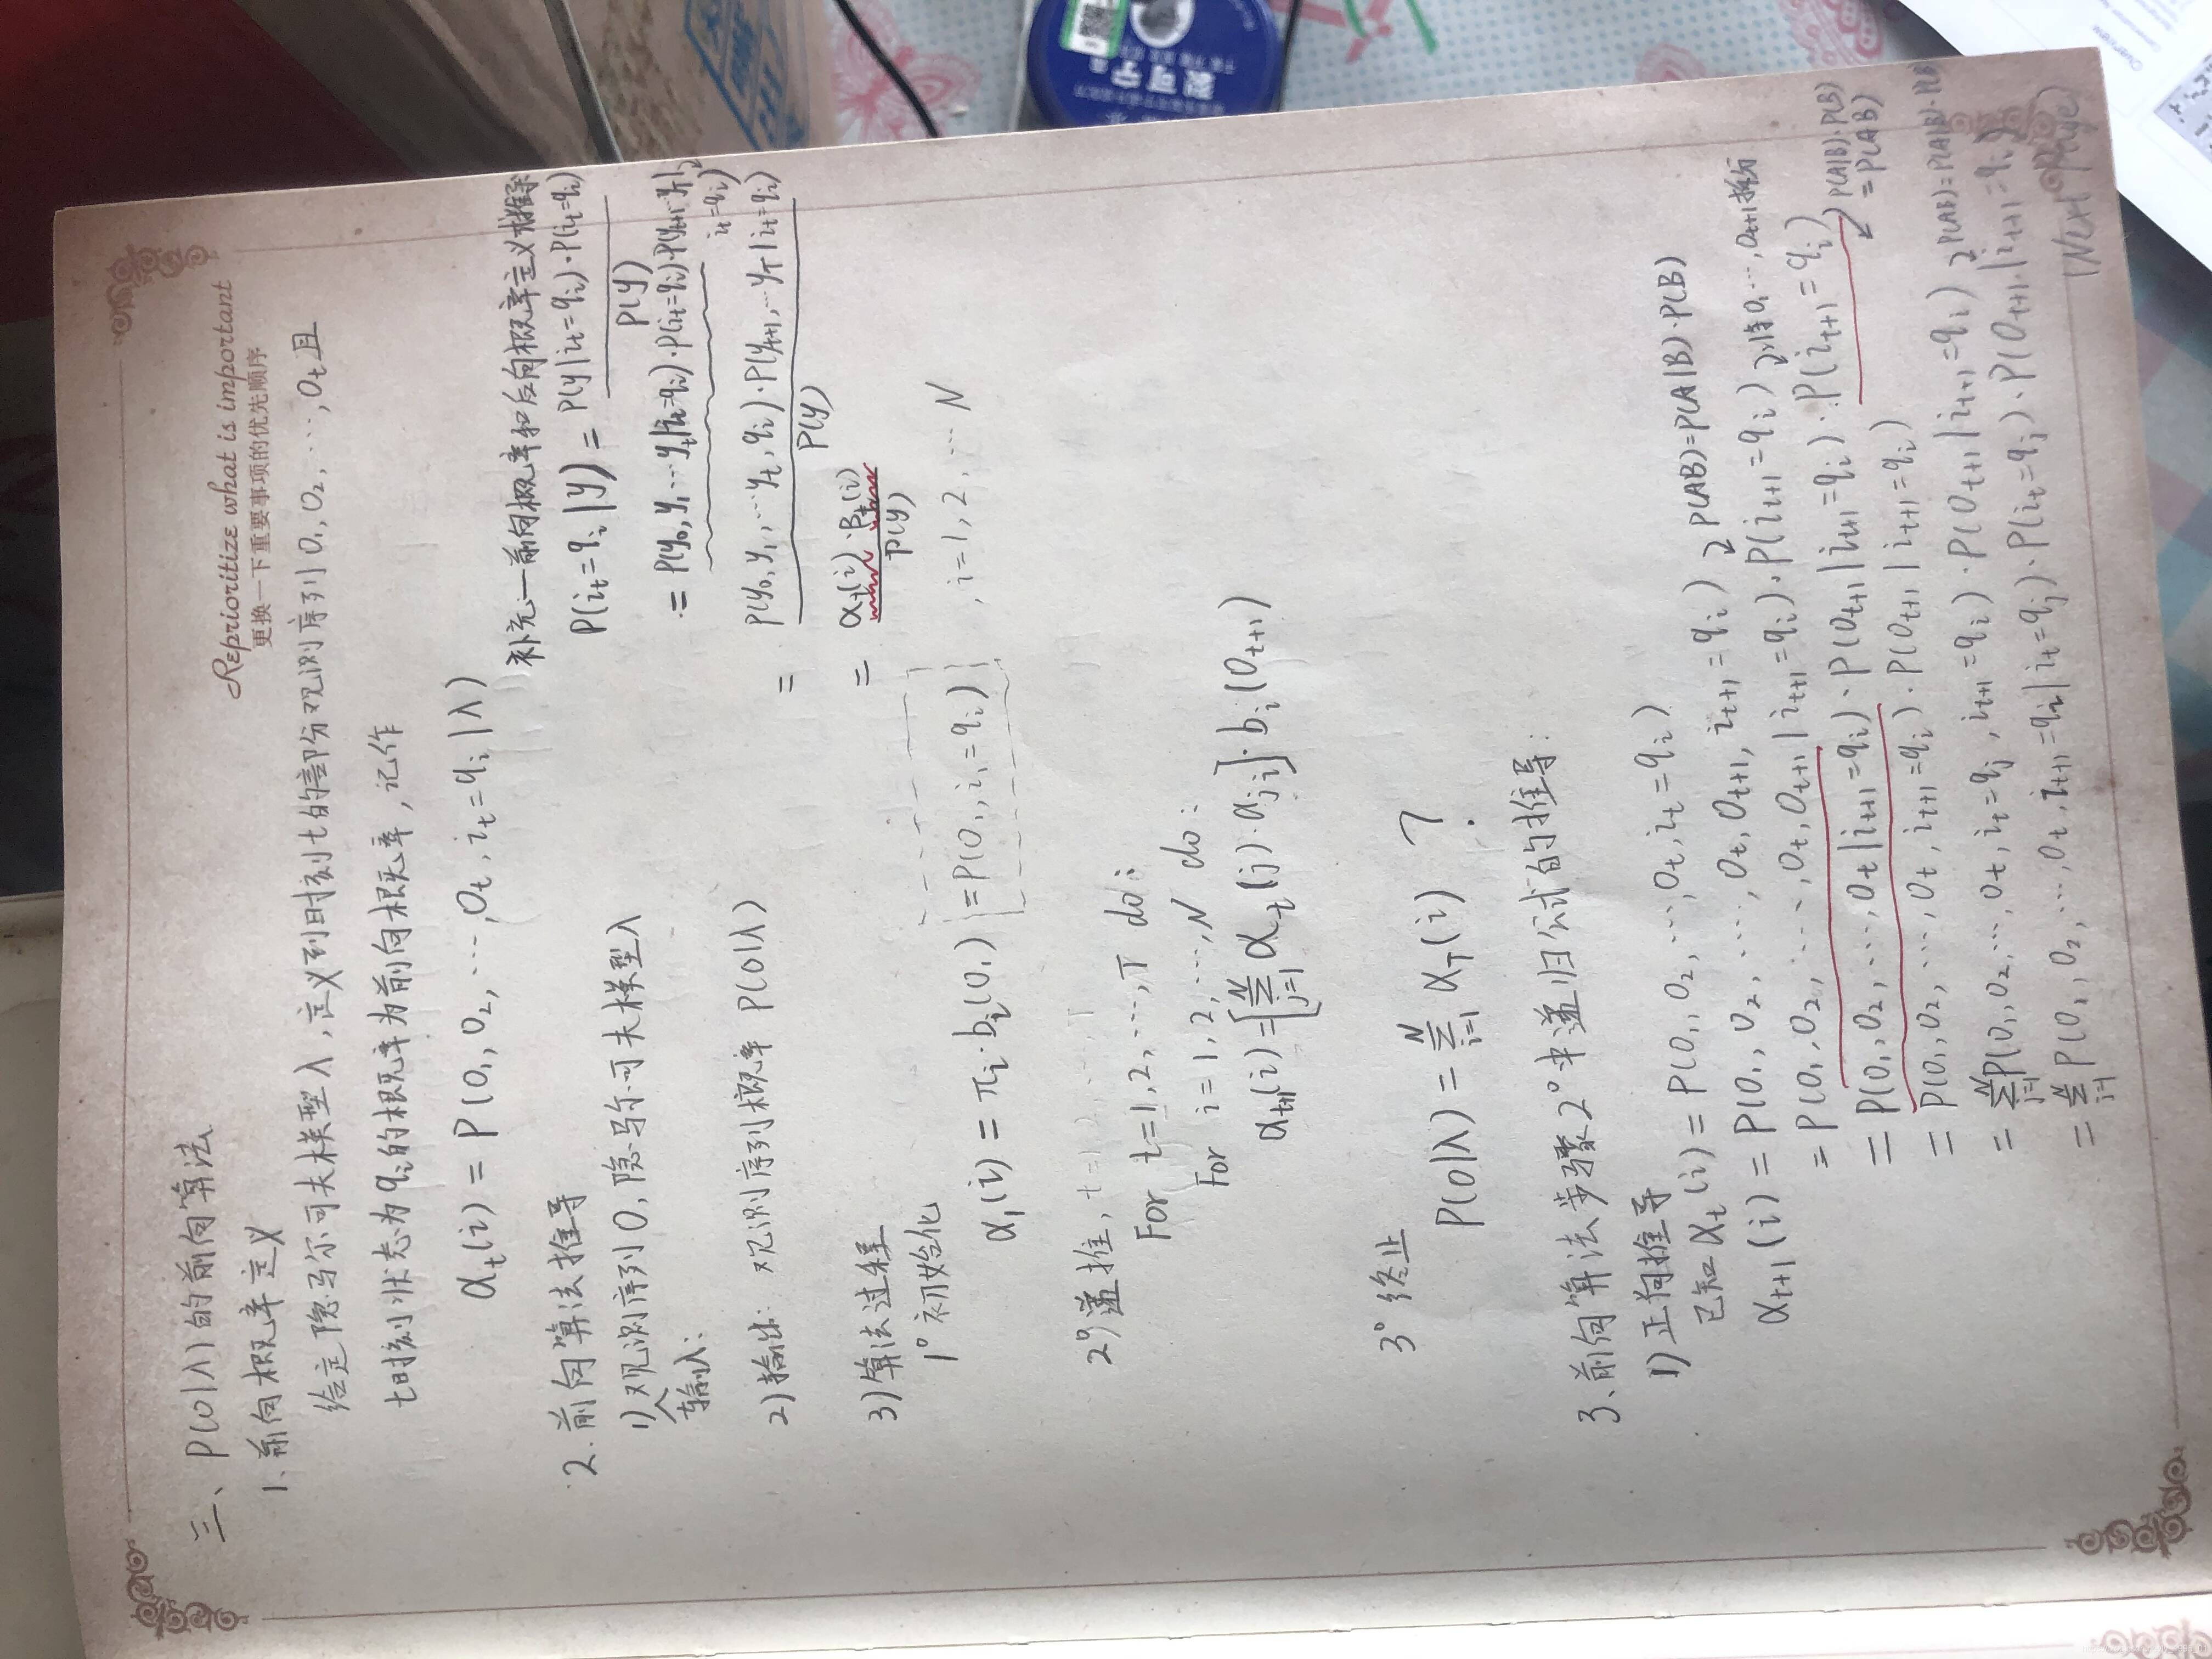 Reprioritize what is important
更换一下重要事项的优先顺序
三、P(O|λ)的前向算法
1、前向概率定义
给定隐马尔可夫模型λ,定义到时刻t的部分观测序列O₁,O₂,…,Oₜ且
t时刻状态为qᵢ的概率为前向概率,记作
αₜ(i) = P(O₁,O₂,…,Oₜ,iₜ=qᵢ|λ)
补充:一前向概率和后向概率定义推导
P(iₜ=qᵢ|y) = P(y|iₜ=qᵢ)·P(iₜ=qᵢ) / P(y)
= P(y₀,y₁,…yₜ|iₜ=qᵢ)·P(iₜ=qᵢ)·P(yₜ₊₁…y_T|iₜ=qᵢ)
= P(y₀,y₁,…yₜ,qᵢ)·P(yₜ₊₁,…y_T|iₜ=qᵢ) / P(y)
= αₜ(i)·βₜ(i) / P(y)
2.前向算法推导
1)输入:观测序列O,隐马尔可夫模型λ
2)输出:观测序列概率P(O|λ)
3)算法过程
1°初始化
α₁(i) = πᵢ·bᵢ(O₁) = P(O₁,i₁=qᵢ) ,i=1,2,…N
2°递推,
For t=1,2,…,T do:
For i=1,2,…,N do:
αₜ₊₁(i)=[∑ⱼ₌₁ᴺ αₜ(j)·aⱼᵢ]·bᵢ(Oₜ₊₁)
3°终止
P(O|λ) = ∑ᵢ₌₁ᴺ α_T(i) ?
3、前向算法步骤2°中递归公式的推导:
1)正向推导
已知αₜ(i) = P(O₁,O₂,…,Oₜ,iₜ=qᵢ)
αₜ₊₁(i) = P(O₁,O₂,…,Oₜ,Oₜ₊₁,iₜ₊₁=qᵢ) P(AB)=P(A|B)·P(B)
= P(O₁,O₂,…,Oₜ,Oₜ₊₁|iₜ₊₁=qᵢ)·P(iₜ₊₁=qᵢ) 将O₁…,Oₜ₊₁拆分
= P(O₁,O₂,…,Oₜ|iₜ₊₁=qᵢ)·P(Oₜ₊₁|iₜ₊₁=qᵢ)·P(iₜ₊₁=qᵢ) P(A|B)·P(B)
=P(AB)
= P(O₁,O₂,…,Oₜ,iₜ₊₁=qᵢ)·P(Oₜ₊₁|iₜ₊₁=qᵢ)
= ∑ᵢ₌₁ᴺ P(O₁,O₂,…,Oₜ,iₜ=qⱼ,iₜ₊₁=qᵢ)·P(Oₜ₊₁|iₜ₊₁=qᵢ) P(AB)=P(A|B)·P(B
= ∑ᵢ₌₁ᴺ P(O₁,O₂,…,Oₜ,iₜ₊₁=qᵢ|iₜ=qⱼ)·P(iₜ=qⱼ)·P(Oₜ₊₁|iₜ₊₁=qᵢ)
(Next Page)